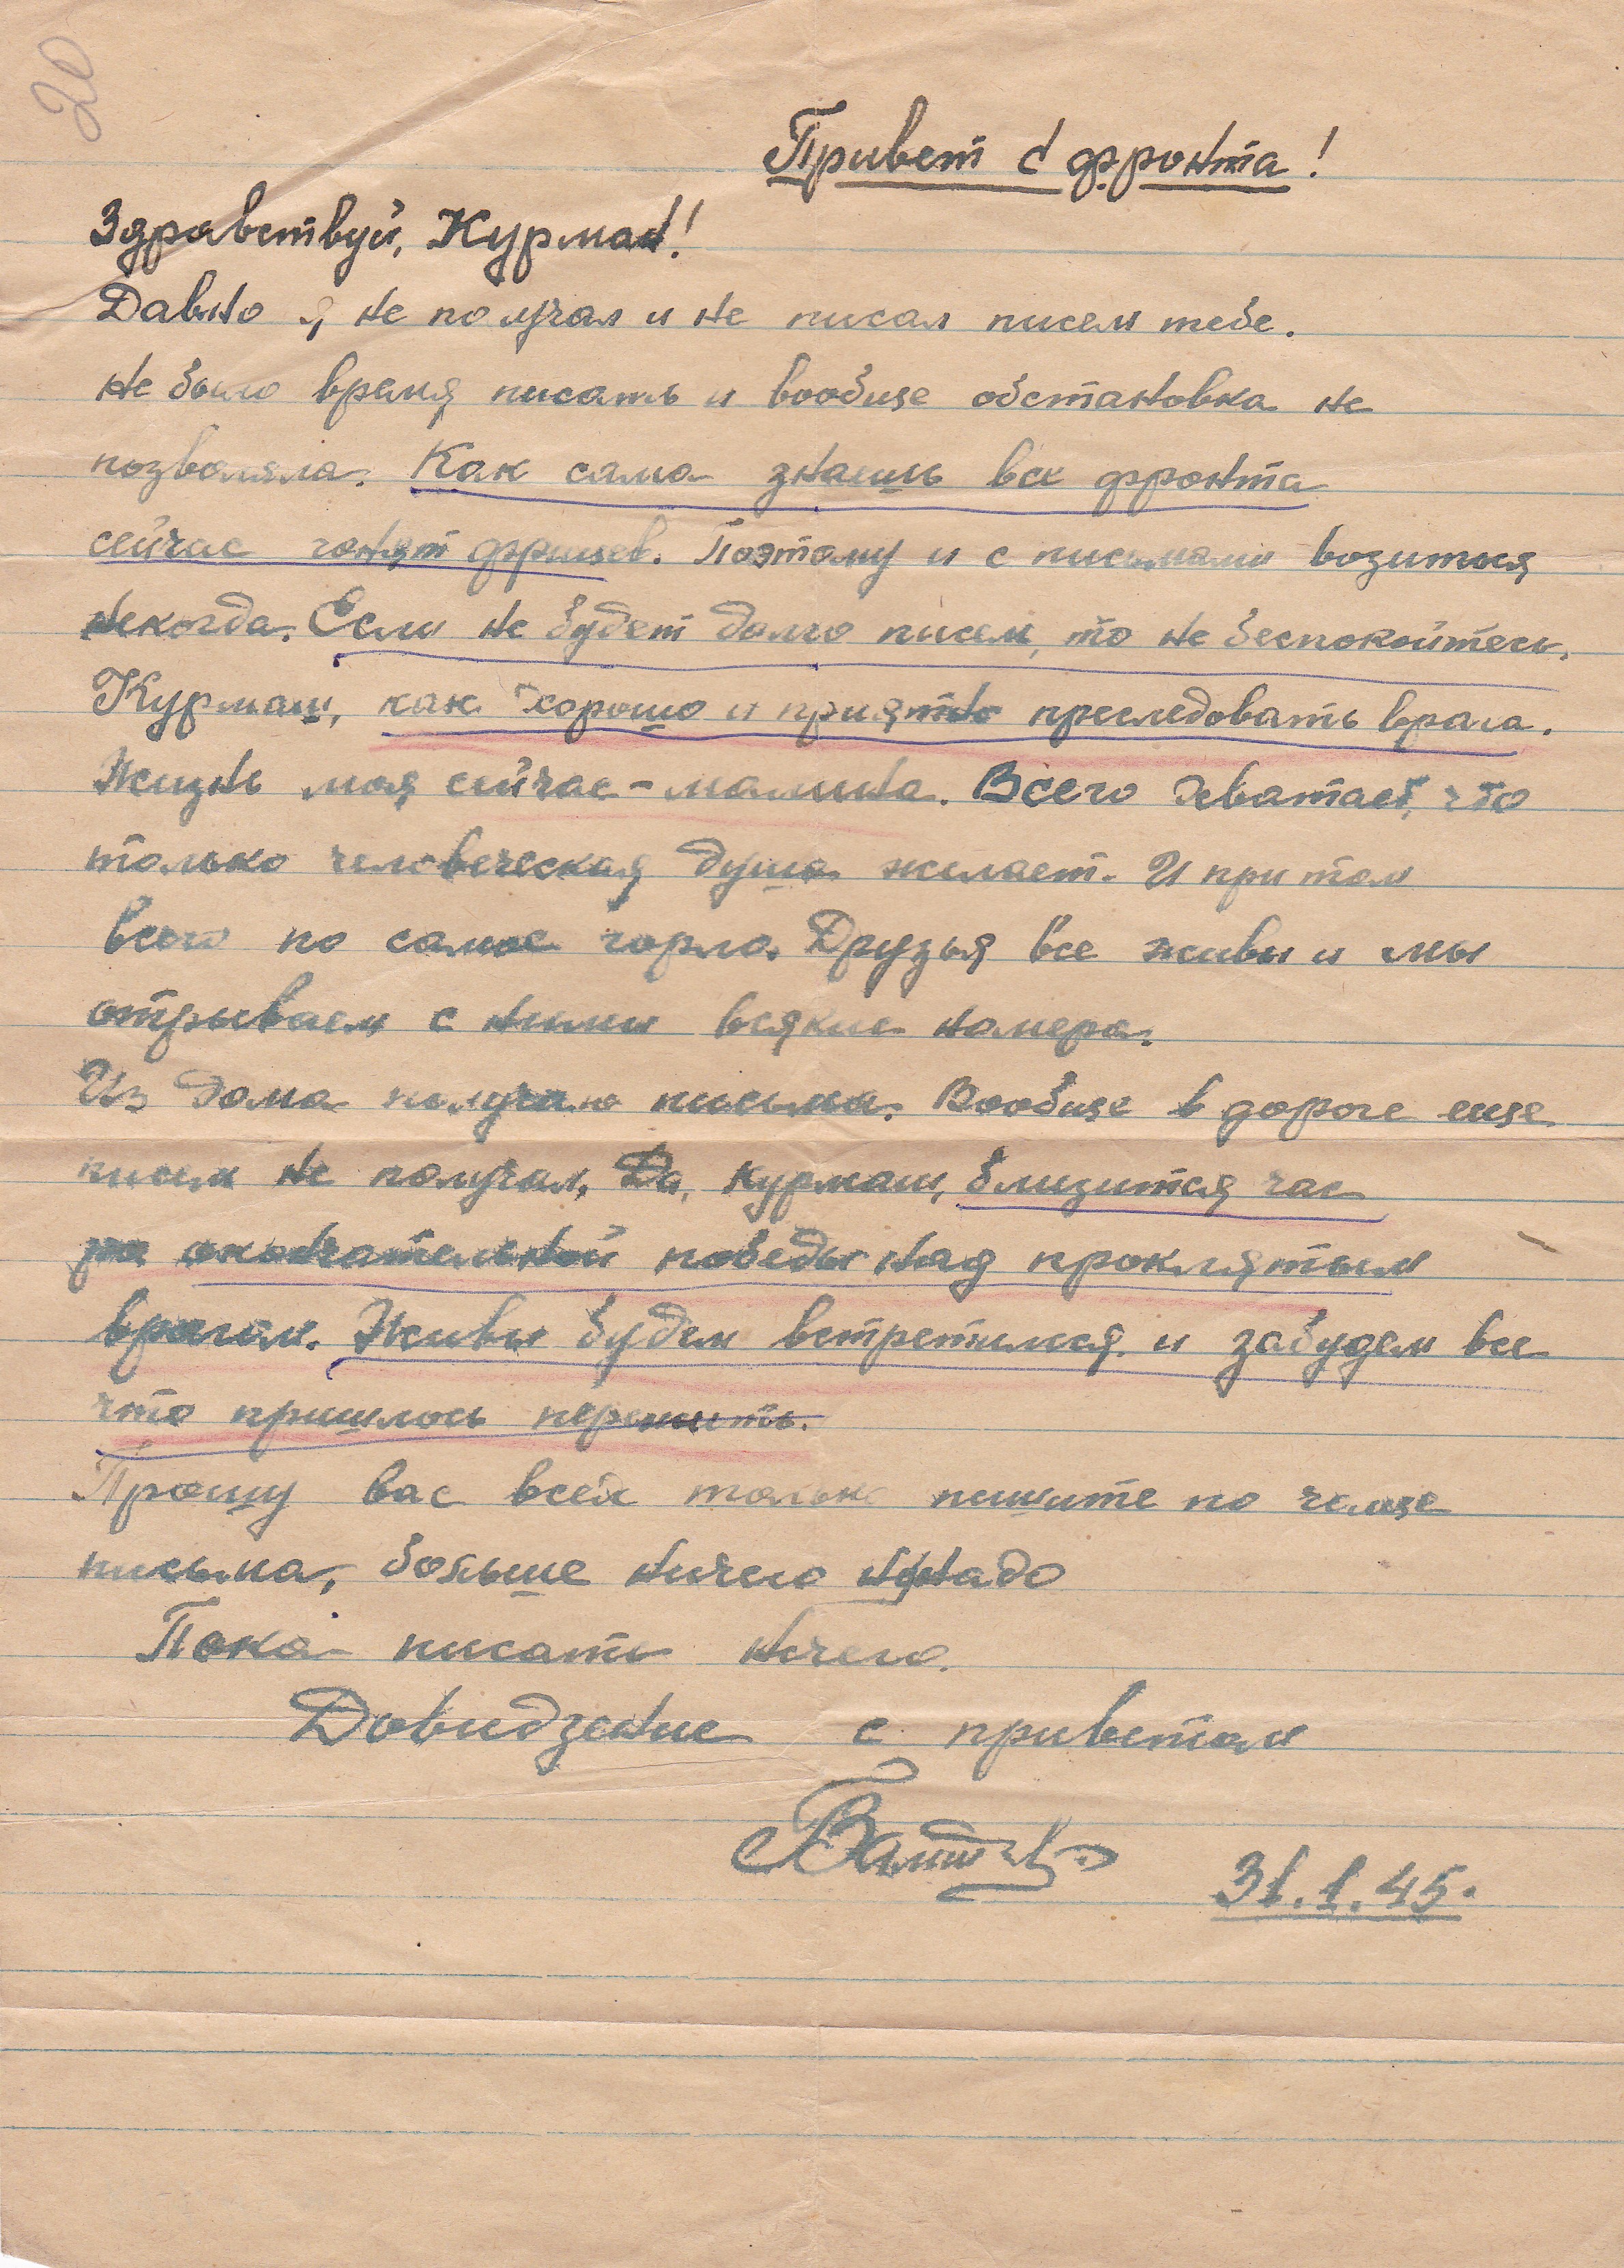 20
Привет с фронта!
Здравствуй, Курман!
Давно я не получал и не писал писем тебе.
Не было время писать и вообще обстановка не
позволяла. Как сама знаешь все фронта
сейчас гонят фрицев. Поэтому и с письмами возиться
некогда. Если не будет долго писем, то не беспокойтесь.
Курмаш, как хорошо и приятно преследовать врага.
Жизнь моя сейчас - малина. Всего хватает, что
только человеческая душа желает. И при том
всего по самое горло. Друзья все живы и мы
отрываем с ними всякие номера.
Из дома получаю письма. Вообще в дороге еще
писем не получал. Да, Курмаш, близится час
окончательной победы над проклятым
врагом. Живы будем встретимся и забудем все
что пришлось пережить.
Прошу вас всех только пишите по чаще
письма, больше ничего не надо
Пока писать нечего.
Довидзение с приветом
31.1.45.